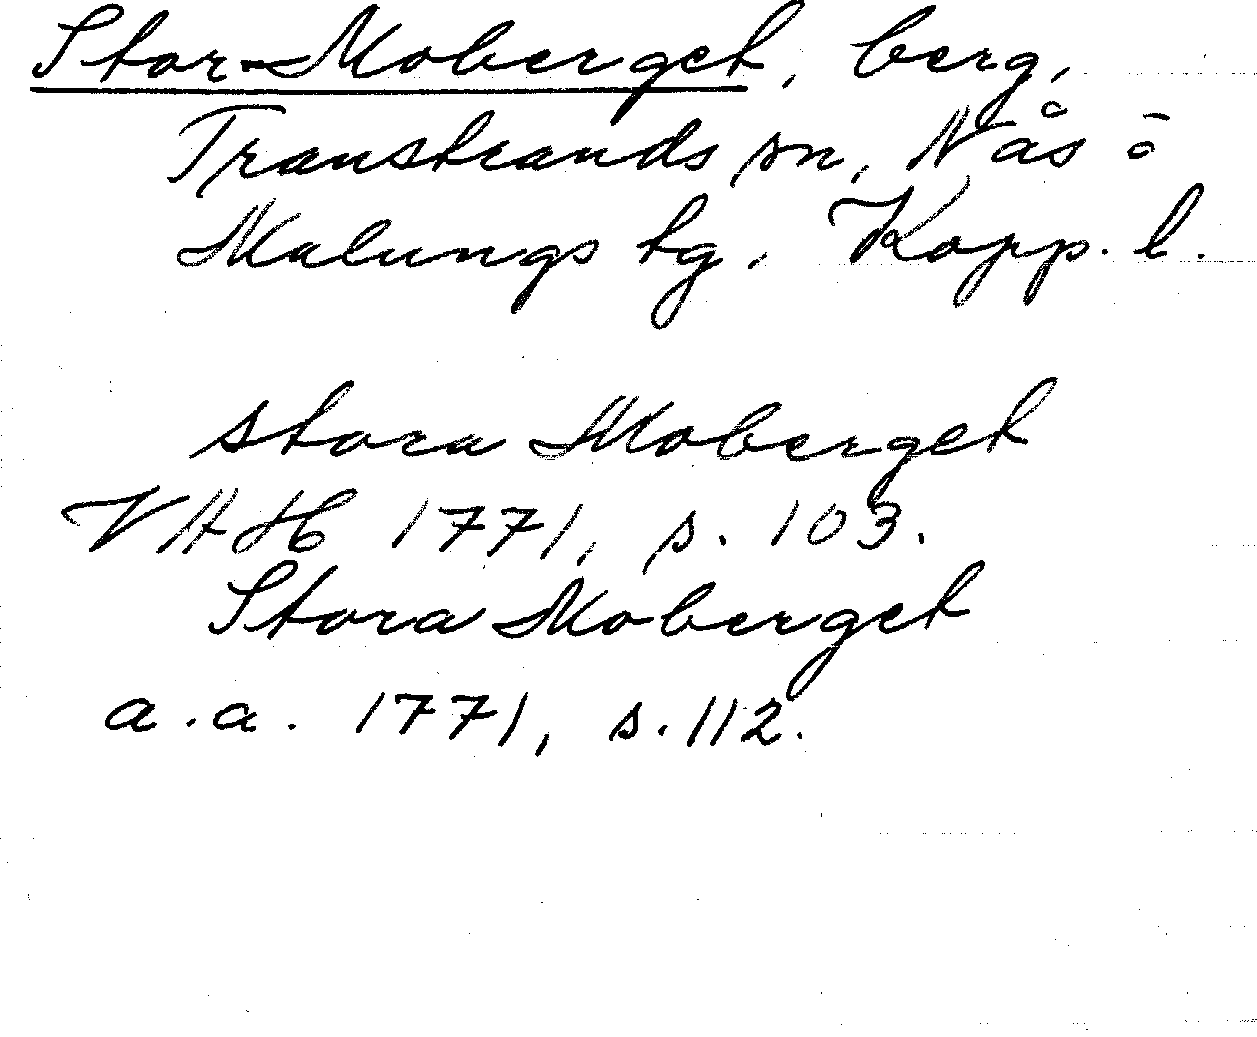 Stor-Moberget, berg,
Transtrands sn, Nås o
Malungs tg, Kopp. l.
stora Moberget
VHH 1771, s. 103.
Stora Moberget
a.a. 1771, s. 112.